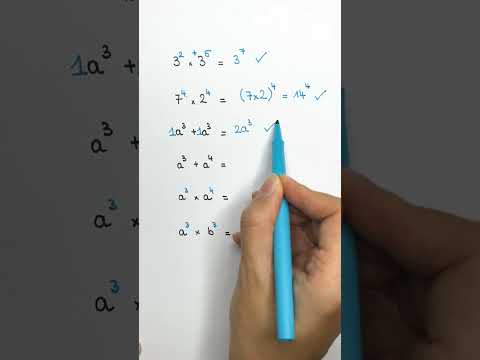 3² × ⁺ 3⁵ = 3⁷ ✓
7⁴ × 2⁴ = (7×2)⁴ = 14⁴ ✓
1a³ + 1a³ = 2a³ ✓
a³ + a⁴ =
a³ × a⁴ =
a³ × b³ =